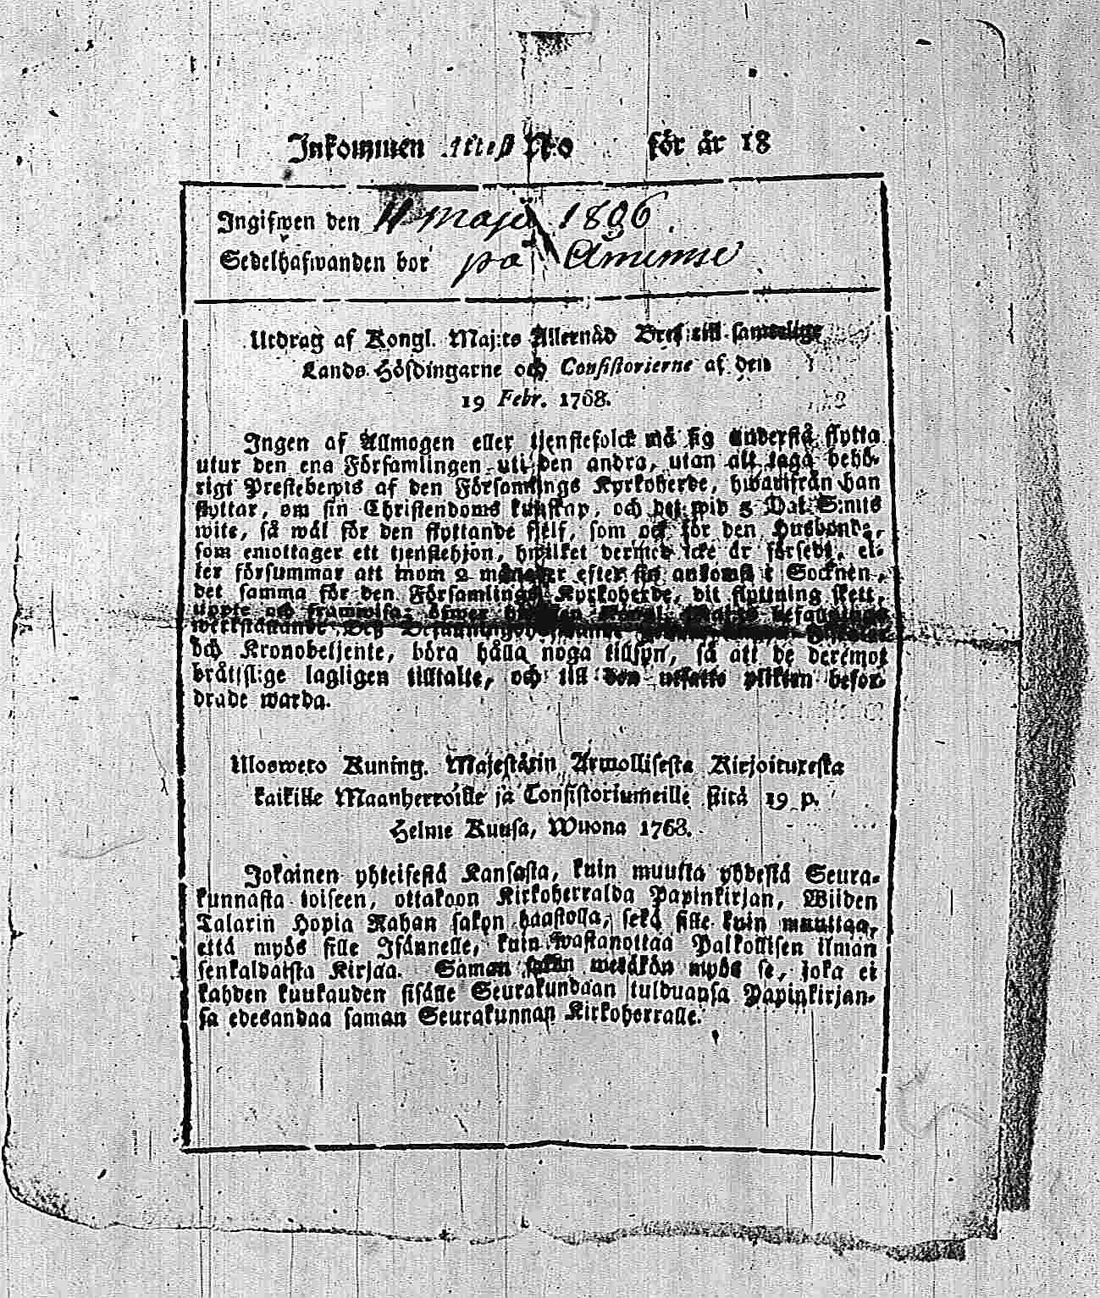 Inkommen Attest No för år 18
Ingifwen den 11 Maji 1896
Sedelhafwanden bor på
Utdrag af Kongl. Maj:ts Allernåd Bref till samtelige
Lands Höfdingarne och Consistorierne af den
19 Febr. 1768.
Ingen af Allmogen eller tjenstefolck må sig understå flytta
utur den ena Församlingen uti den andra, utan att taga behö-
rigt Prestebewis af den Församlings Kyrkoherde, hwarifrån han
flyttar, om sin Christendoms kunskap, och det wid 5 Dal. S:mts
wite, så wäl för den flyttande sjelf, som ock för den Husbonde,
som emottager ett tjenstehjon, hwilket dermed icke är försedt, el-
ler försummar att inom 2 månader efter sin ankomst i Socknen,
det samma för den Församlings Kyrkoherde, dit flyttning skett,
uppte och framwisa; öfwer Kongl. Maj:ts befallnings
werkställande, Dess
och Kronobetjente, böra hålla noga tillsyn, så att de deremot
bråttslige lagligen tilltalte, och till den utsatte plikten beford-
drade warda.
Ulosweto Kuning. Majestätin Armollisesta Kirjoituxesta
kaikille Maanherroille ja Consistoriumeille siitä 19 p.
Helme Kuusa, Wuona 1768.
Jokainen yhteisestä Kansasta, kuin muutta yhdestä Seura-
kunnasta toiseen, ottakoon Kirkoherralda Papinkirjan, Wiiden
Talarin Hopia Rahan sakon haastolla, sekä sille kuin muuttaa,
että myös sille Isännelle, kuin wastanottaa Palkollisen ilman
senkaldaista Kirjaa. Saman sakon wetäkön myös se, joka ei
kahden kuukauden sisälle Seurakundaan tulduansa Papinkirjan-
sa edesandaa saman Seurakunnan Kirkoherralle.